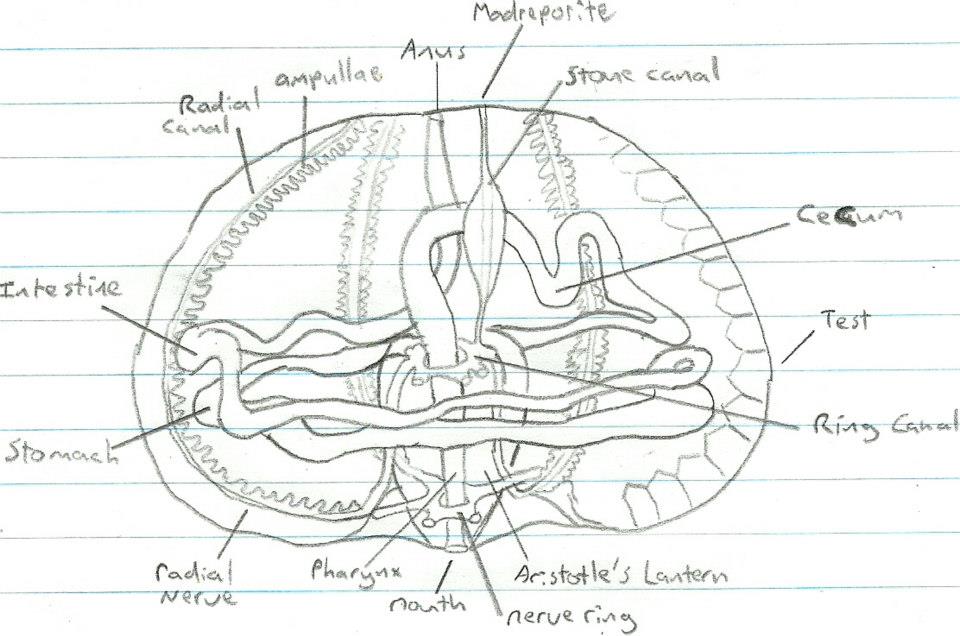 Madreporite
Anus
ampullae
Stone canal
Radial
Canal
Cecum
Intestine
Test
Ring Canal
Stomach
radial
Nerve
Pharynx
Aristotle's Lantern
mouth
nerve ring